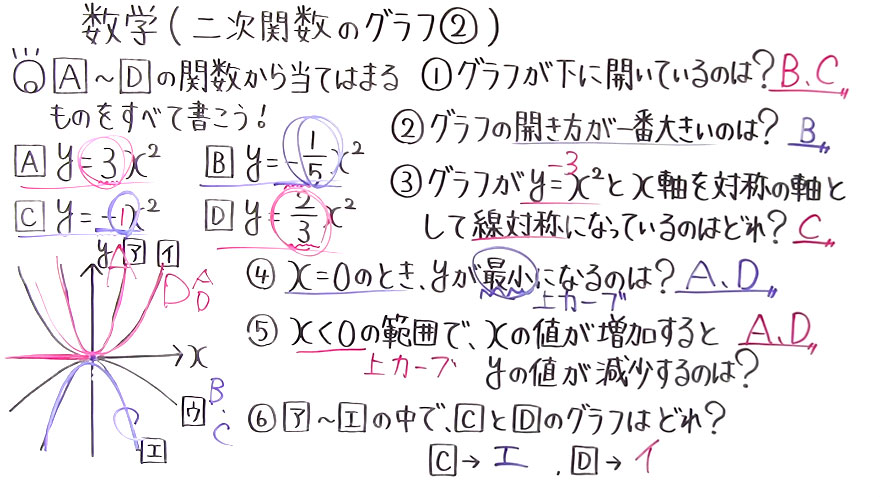 数学(二次関数のグラフ②)
A~Dの関数から当てはまる
ものをすべて書こう!
A y=3x²
B y=-1/5x²
C y=-1x²
D y=2/3x²
y ア イ
A
D A
D
x
B
ウ
C
C
エ
①グラフが下に開いているのは? B、C
②グラフの開き方が一番大きいのは? B
-3
③グラフがy=x²とx軸を対称の軸と
して線対称になっているのはどれ? C
④x=0のとき、yが最小になるのは? A、D
上カーブ
⑤x<0の範囲で、xの値が増加すると A、D
上カーブ yの値が減少するのは?
⑥ア~エの中で、CとDのグラフはどれ?
C→エ、D→イ